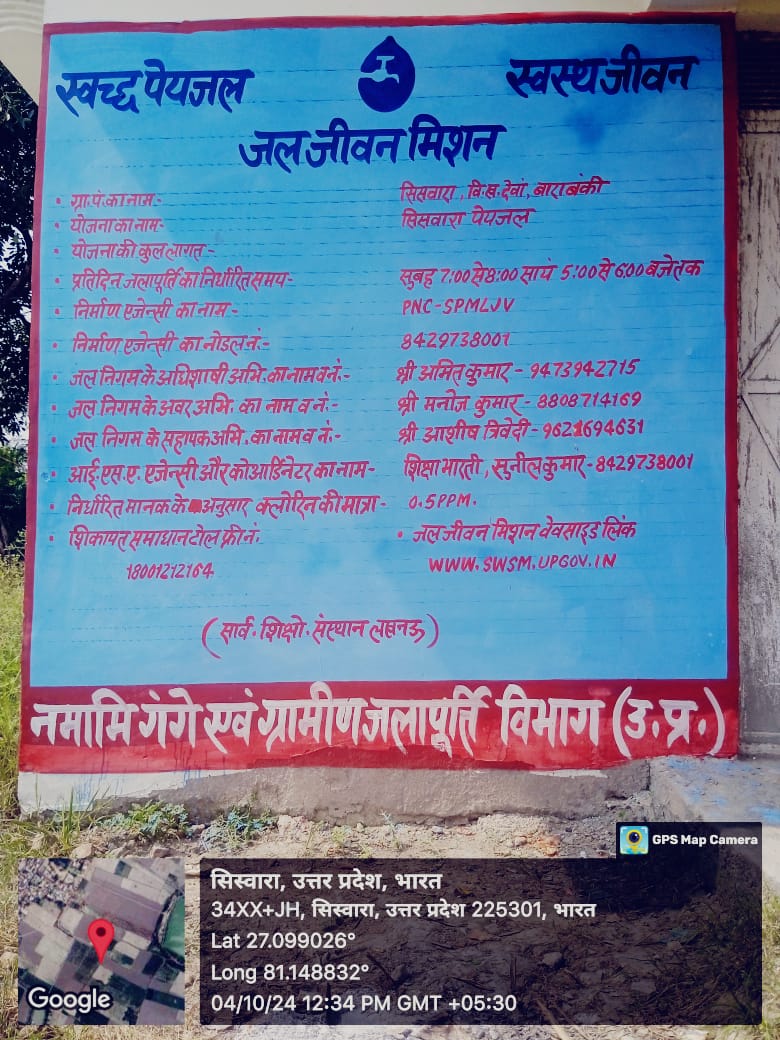 स्वच्छ पेयजल स्वस्थ जीवन
जल जीवन मिशन
• ग्रा.पं. का नाम:- सिसवारा, वि.ख. देवां, बाराबंकी
• योजना का नाम- सिसवारा पेयजल
• योजना की कुल लागत -
• प्रतिदिन जलापूर्ति का निर्धारित समय- सुबह 7:00 से 8:00 सायं 5:00 से 6:00 बजे तक
• निर्माण एजेन्सी का नाम - PNC-SPMLJV
• निर्माण एजेन्सी का नोडल नं.- 8429738001
• जल निगम के अधिशाषी अभि. का नाम व नं.- श्री अमित कुमार - 9473942715
• जल निगम के अवर अभि. का नाम व नं.- श्री मनोज कुमार - 8808714169
• जल निगम के सहायक अभि. का नाम व नं.- श्री आशीष त्रिवेदी - 9621694631
• आई. एस. ए. एजेन्सी और कोआर्डिनेटर का नाम- शिक्षा भारती, सुनील कुमार - 8429738001
• निर्धारित मानक के अनुसार क्लोरिन की मात्रा- 0.5PPM.
• शिकायत समाधान टोल फ्री नं. • जल जीवन मिशन वेवसाइड लिंक
18001212164 WWW.SWSM.UPGOV.IN
(सार्व. शिक्षो. संस्थान लखनऊ)
नमामि गंगे एवं ग्रामीण जलापूर्ति विभाग (उ.प्र.)
GPS Map Camera
सिस्वारा, उत्तर प्रदेश, भारत
34XX+JH, सिस्वारा, उत्तर प्रदेश 225301, भारत
Lat 27.099026°
Long 81.148832°
04/10/24 12:34 PM GMT +05:30
Google